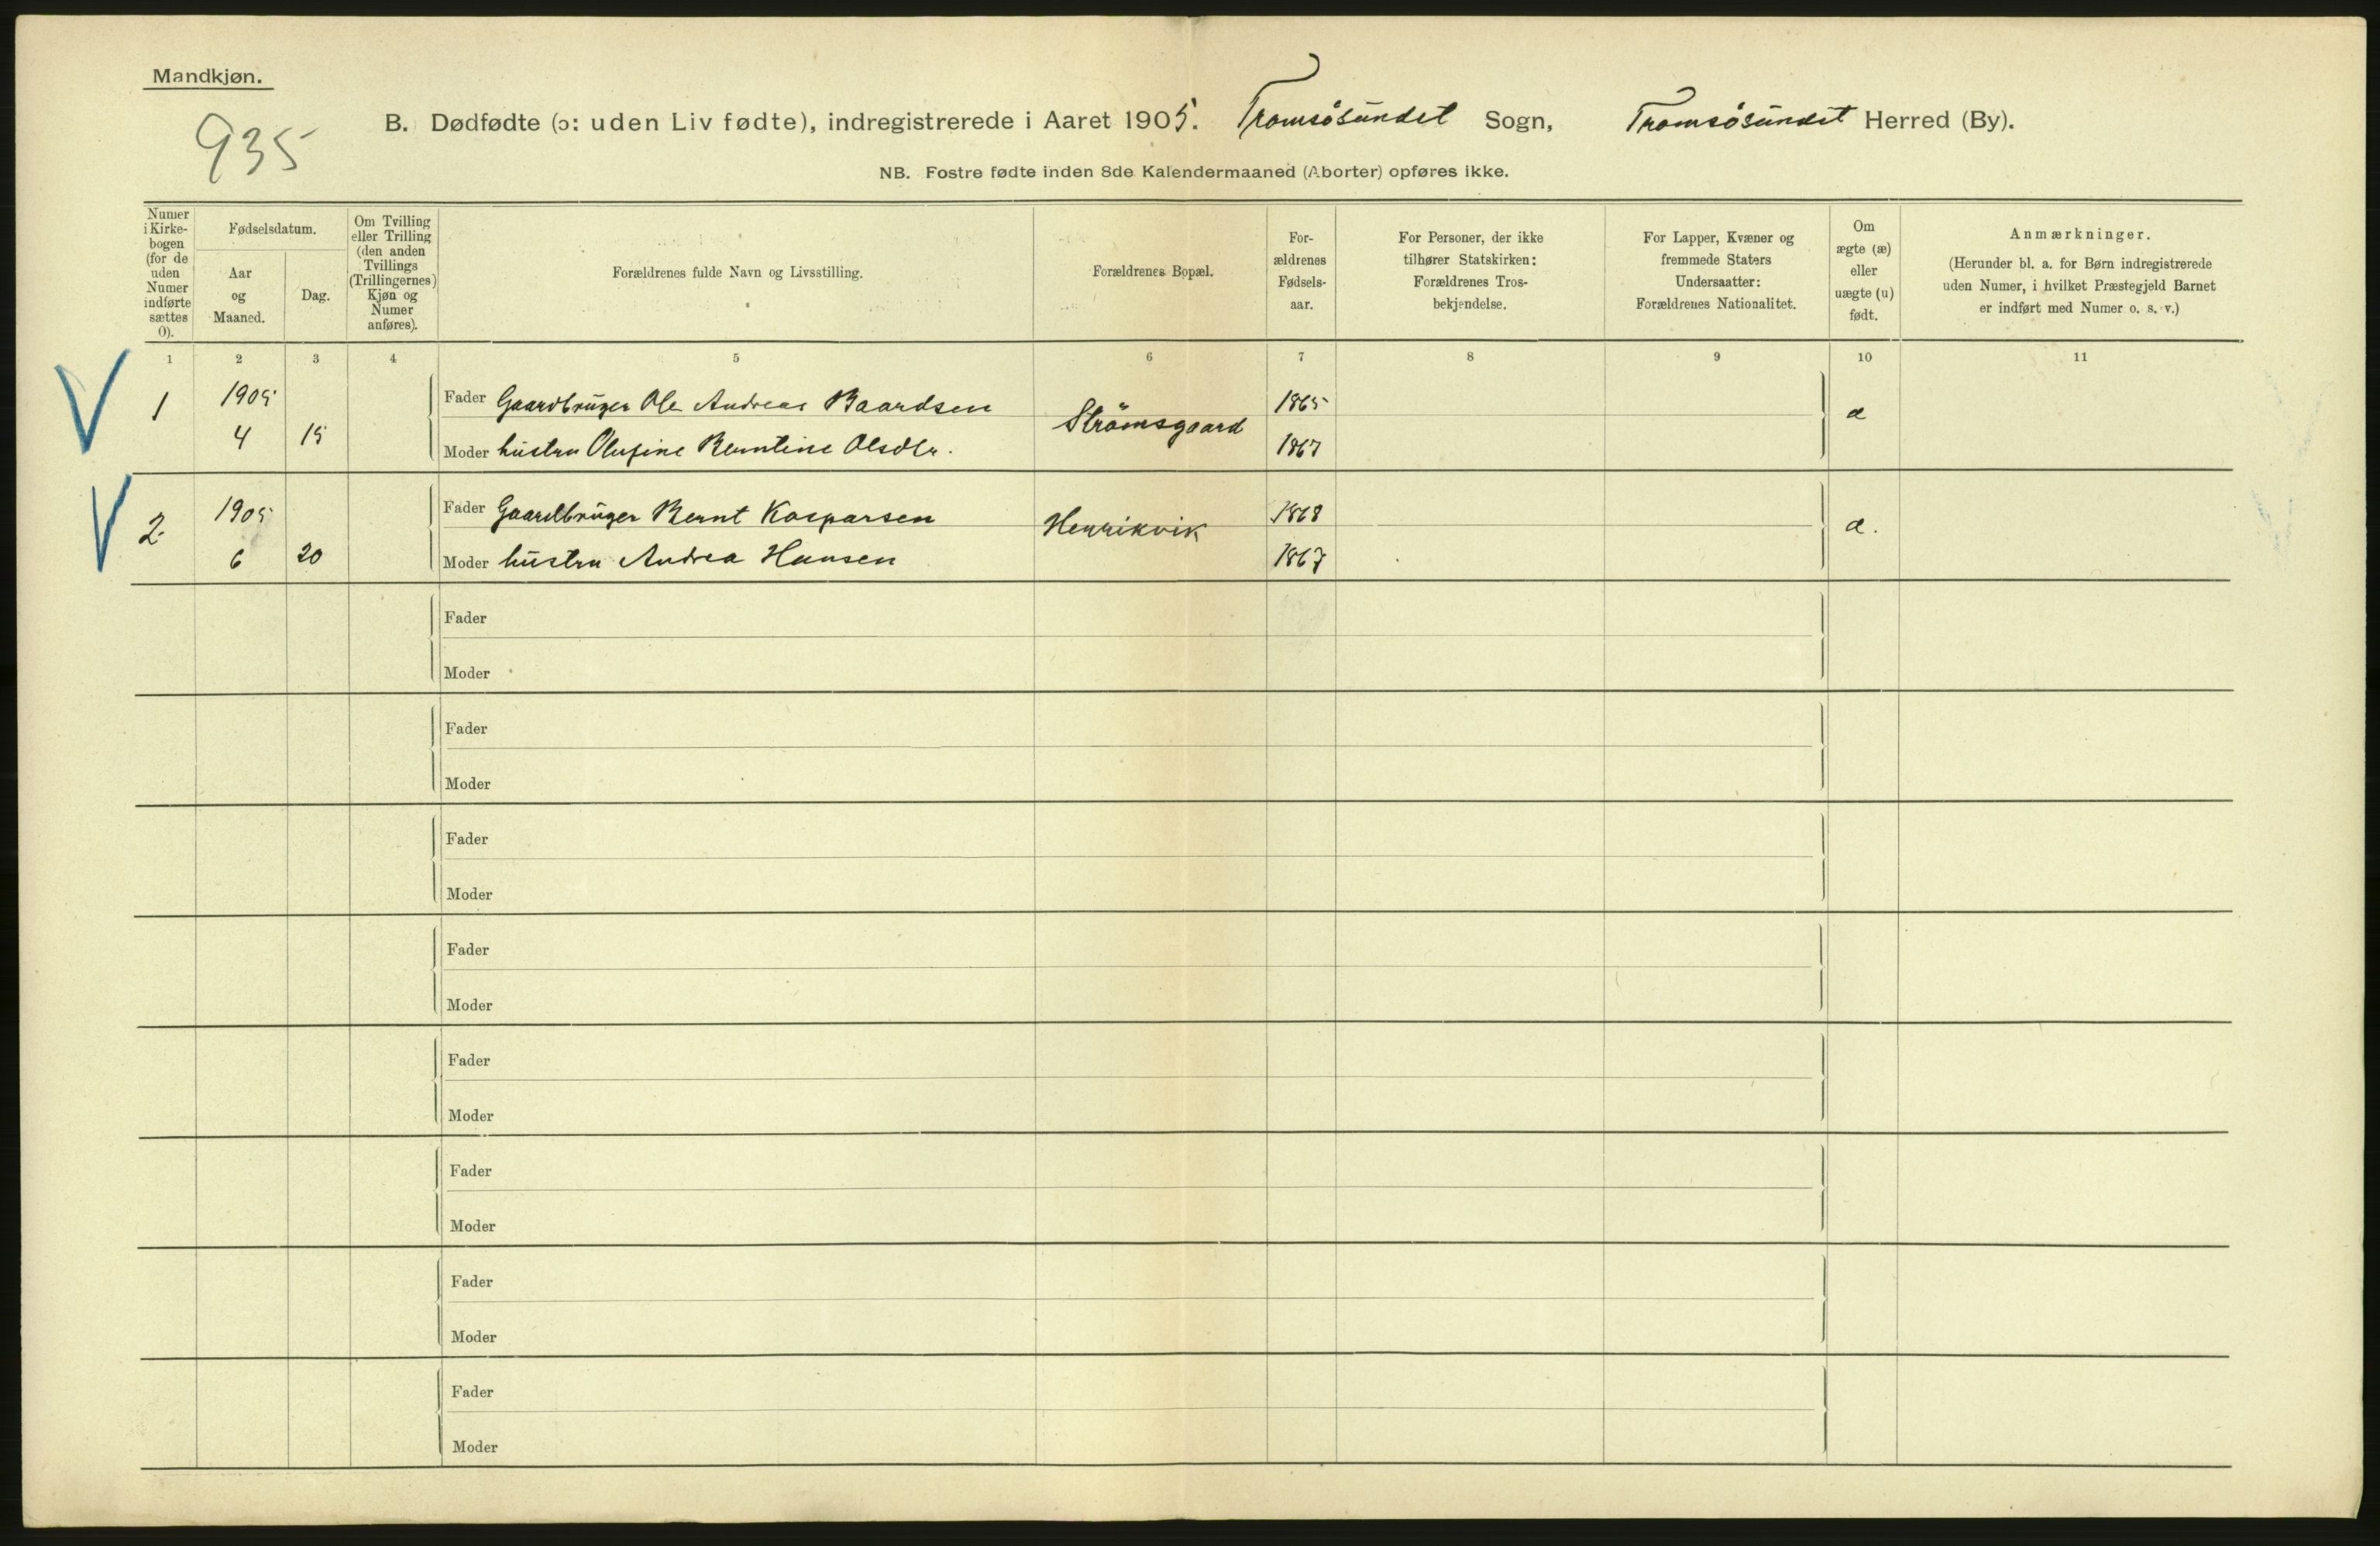 Mandkjøn.
935
B. Dødfødte (ɔ: uden Liv fødte), indregistrerede i Aaret 1905. Tromsøsundet Sogn, Tromsøsundet Herred (By).
NB. Fostre fødte inden 8de Kalendermaaned (Aborter) opføres ikke.
Numer i Kirke-bogen (for de uden Numer indførte sættes 0).
Fødselsdatum.
Aar og Maaned.
Dag.
Om Tvilling eller Trilling (den anden Tvillings (Trillingernes) Kjøn og Numer anføres).
Forældrenes fulde Navn og Livsstilling.
Forældrenes Bopæl.
For-ældrenes Fødsels-aar.
For Personer, der ikke tilhører Statskirken: Forældrenes Tros-bekjendelse.
For Lapper, Kvæner og fremmede Staters Undersaatter: Forældrenes Nationalitet.
Om ægte (æ) eller uægte (u) født.
Anmærkninger.
(Herunder bl. a. for Børn indregistrerede uden Numer, i hvilket Præstegjeld Barnet er indført med Numer o. s. v.)
1 2 3 4 5 6 7 8 9 10 11
1 1905 Fader Gaardbruger Ole Andreas Baardsen Strömsgaard 1865 æ
4 15 Moder hustru Olufine Berntine Olsdtr. 1867
2. 1905 Fader Gaardbruger Bernt Kasparsen Henrikvik 1868 æ.
6 20 Moder hustru Andrea Hansen 1867
Fader
Moder
Fader
Moder
Fader
Moder
Fader
Moder
Fader
Moder
Fader
Moder
Fader
Moder
Fader
Moder